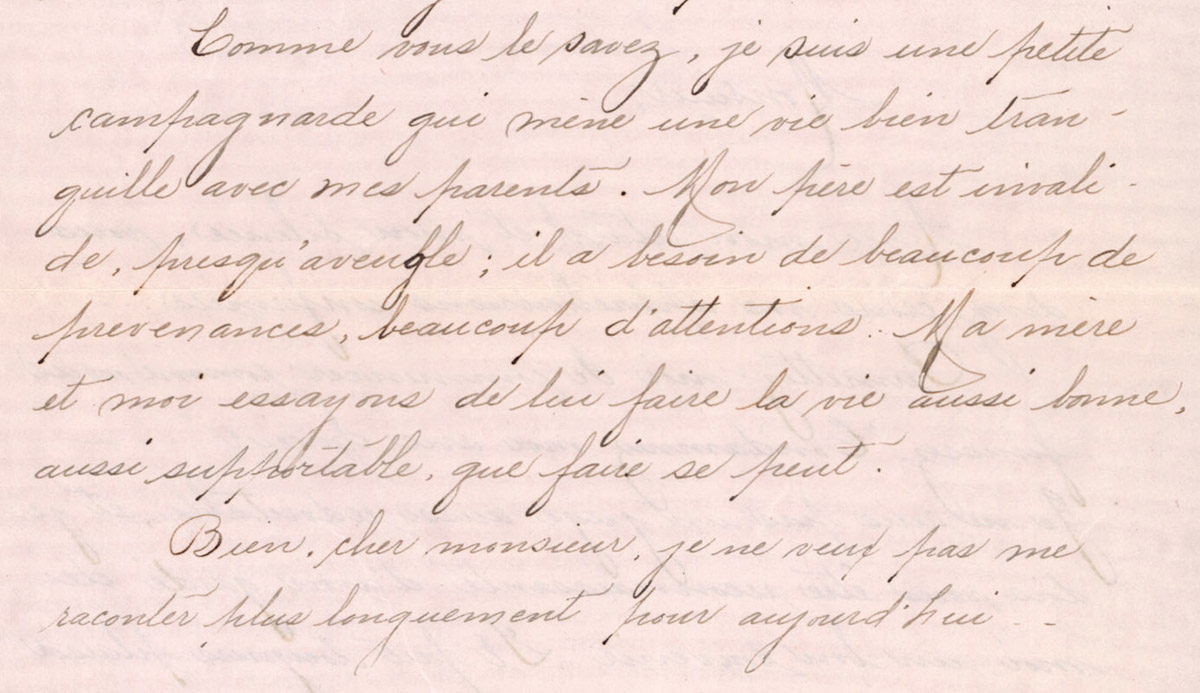 Comme vous le savez, je suis une petite
campagnarde qui mène une vie bien tran-
quille avec mes parents. Mon père est invali-
de, presqu'aveugle; il a besoin de beaucoup de
prevenances, beaucoup d'attentions. Ma mère
et moi essayons de lui faire la vie aussi bonne,
aussi supportable, que faire se peut.
Bien, cher monsieur, je ne veux pas me
raconter plus longuement pour aujourd'hui - -